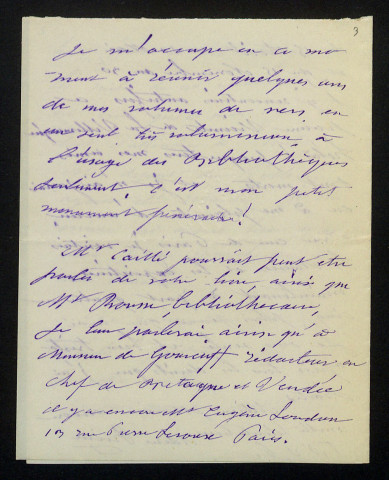 3
Je m'occupe en ce mo
ment à réunir quelques uns
de mes volumes de vers en
un seul très volumineux à
l'usage des Bibliothèques
seulement, c'est mon petit
monument funéraire !
Mr Caillé pourrait peut être
parler de votre livre, ainsi que
Mr Rousse, bibliothécaire,
Je leur parlerai ainsi qu'à
Monsieur de Gourcuff rédacteur en
chef de Bretagne et Vendée
il y a encore Mr Eugène Loudun
rue Pierre Paris.